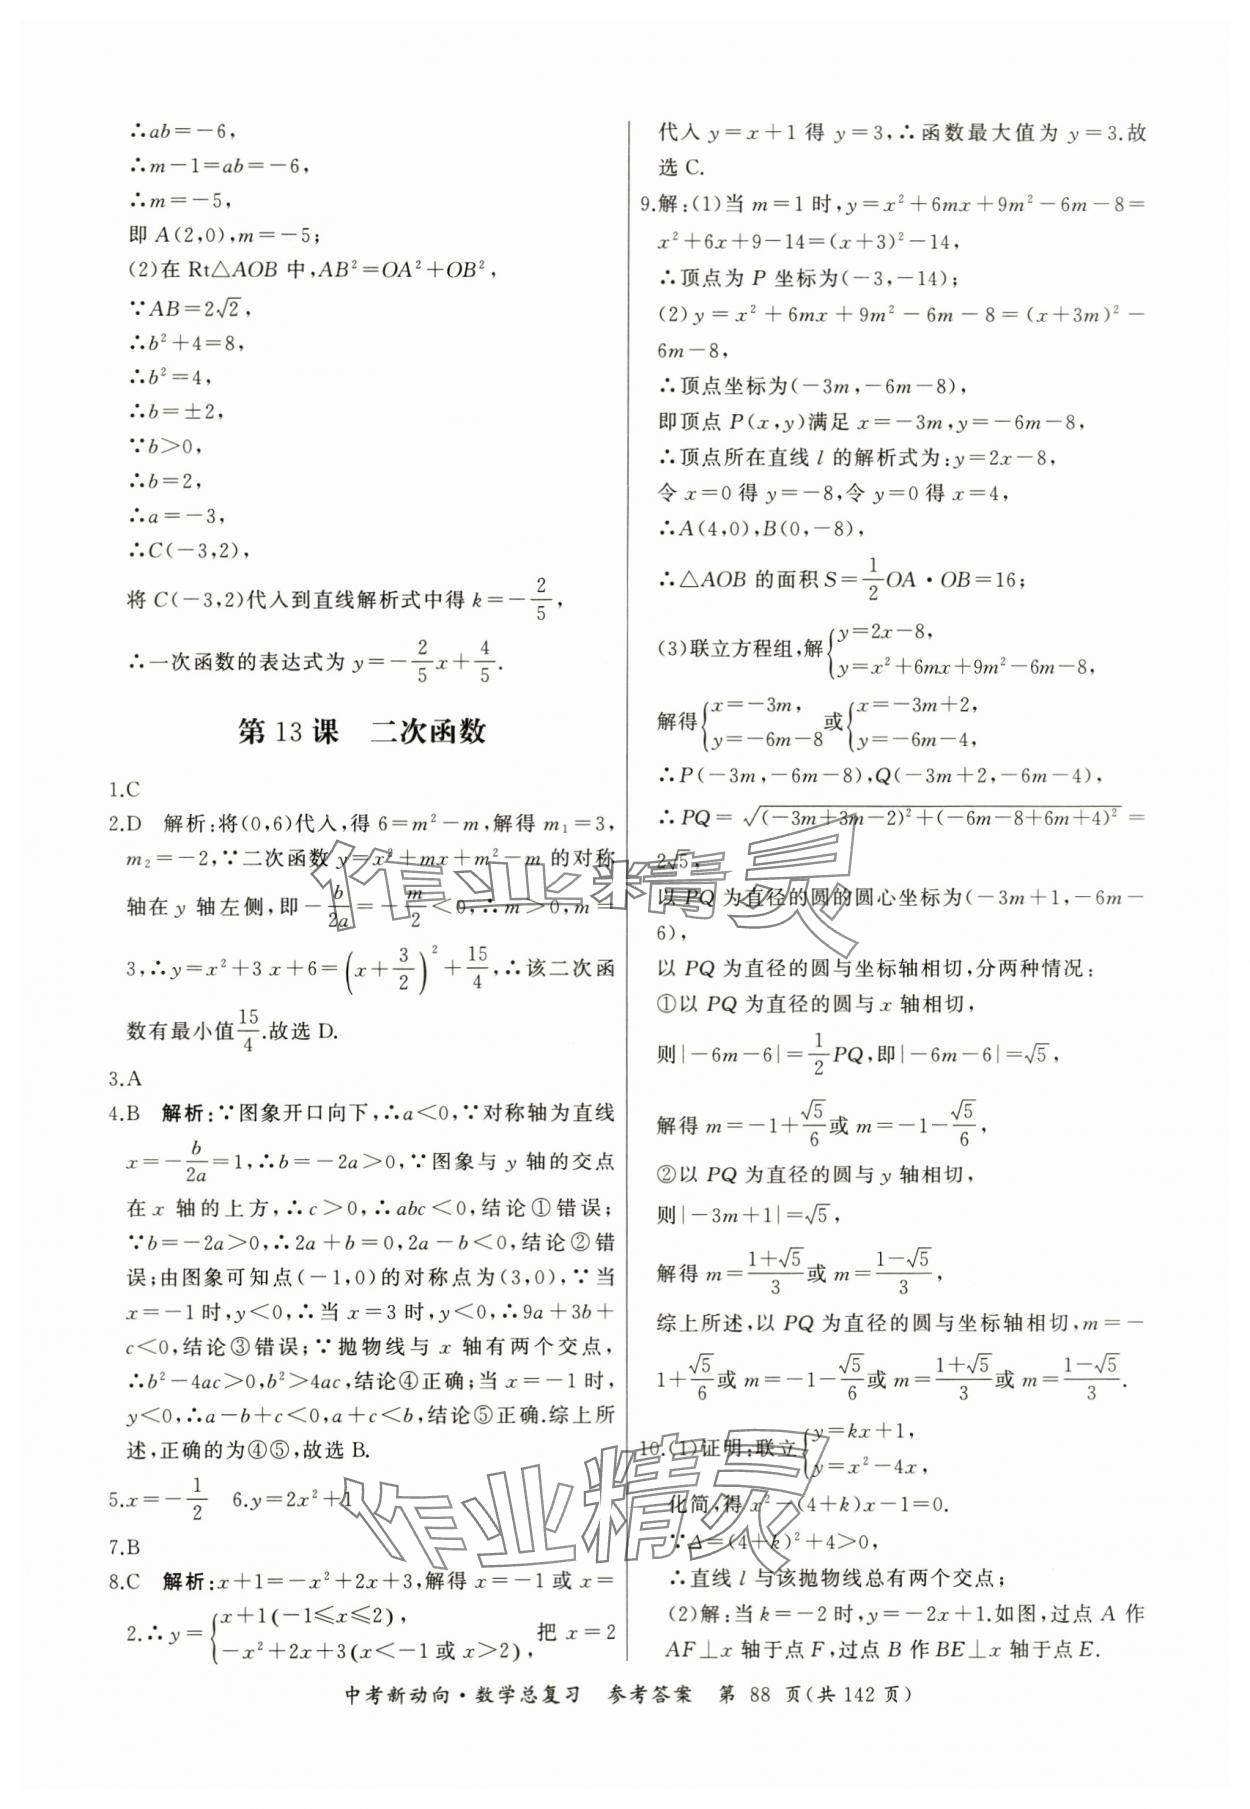 ∴ab=-6,
∴m-1=ab=-6,
∴m=-5,
即 A(2,0),m=-5;
(2)在 Rt△AOB 中,AB²=OA²+OB²,
∵AB=2√2,
∴b²+4=8,
∴b²=4,
∴b=±2,
∵b>0,
∴b=2,
∴a=-3,
∴C(-3,2),
将 C(-3,2)代入到直线解析式中得 k=-2/5,
∴一次函数的表达式为 y=-2/5x+4/5.
第 13 课 二次函数
1.C
2.D 解析:将(0,6)代入,得 6=m²-m,解得 m₁=3,
m₂=-2,∵二次函数 y=x²+mx+m²-m 的对称
轴在 y 轴左侧,即-b/2a=-m/2<0,∴m>0,m=
3,∴y=x²+3x+6=(x+3/2)²+15/4,∴该二次函
数有最小值15/4.故选 D.
3.A
4.B 解析:∵图象开口向下,∴a<0,∵对称轴为直线
x=-b/2a=1,∴b=-2a>0,∵图象与 y 轴的交点
在 x 轴的上方,∴c>0,∴abc<0,结论①错误;
∵b=-2a>0,∴2a+b=0,2a-b<0,结论②错
误;由图象可知点(-1,0)的对称点为(3,0),∵当
x=-1 时,y<0,∴当 x=3 时,y<0,∴9a+3b+
c<0,结论③错误;∵抛物线与 x 轴有两个交点,
∴b²-4ac>0,b²>4ac,结论④正确;当 x=-1 时,
y<0,∴a-b+c<0,a+c<b,结论⑤正确.综上所
述,正确的为④⑤,故选 B.
5.x=-1/2 6.y=2x²+1
7.B
8.C 解析:x+1=-x²+2x+3,解得 x=-1 或 x=
2.∴y={x+1(-1⩽x⩽2), -x²+2x+3(x<-1 或 x>2), 把 x=2
代入 y=x+1 得 y=3,∴函数最大值为 y=3.故
选 C.
9.解:(1)当 m=1 时,y=x²+6mx+9m²-6m-8=
x²+6x+9-14=(x+3)²-14,
∴顶点为 P 坐标为(-3,-14);
(2)y=x²+6mx+9m²-6m-8=(x+3m)²-
6m-8,
∴顶点坐标为(-3m,-6m-8),
即顶点 P(x,y)满足 x=-3m,y=-6m-8,
∴顶点所在直线 l 的解析式为:y=2x-8,
令 x=0 得 y=-8,令 y=0 得 x=4,
∴A(4,0),B(0,-8),
∴△AOB 的面积 S=1/2OA·OB=16;
(3)联立方程组,解{y=2x-8, y=x²+6mx+9m²-6m-8,
解得{x=-3m, y=-6m-8 或{x=-3m+2, y=-6m-4,
∴P(-3m,-6m-8),Q(-3m+2,-6m-4),
∴PQ=√((-3m+3m-2)²+(-6m-8+6m+4)²)=
2√5,
以 PQ 为直径的圆的圆心坐标为(-3m+1,-6m-
6),
以 PQ 为直径的圆与坐标轴相切,分两种情况:
①以 PQ 为直径的圆与 x 轴相切,
则|-6m-6|=1/2PQ,即|-6m-6|=√5,
解得 m=-1+√5/6或 m=-1-√5/6,
②以 PQ 为直径的圆与 y 轴相切,
则|-3m+1|=√5,
解得 m=(1+√5)/3或 m=(1-√5)/3,
综上所述,以 PQ 为直径的圆与坐标轴相切,m=-
1+√5/6或 m=-1-√5/6或 m=(1+√5)/3或 m=(1-√5)/3.
10.(1)证明:联立{y=kx+1, y=x²-4x,
化简,得 x²-(4+k)x-1=0.
∵Δ=(4+k)²+4>0,
∴直线 l 与该抛物线总有两个交点;
(2)解:当 k=-2 时,y=-2x+1.如图,过点 A 作
AF⊥x 轴于点 F,过点 B 作 BE⊥x 轴于点 E.
中考新动向·数学总复习 参考答案 第 88 页(共 142 页)
作业精灵
作业精灵